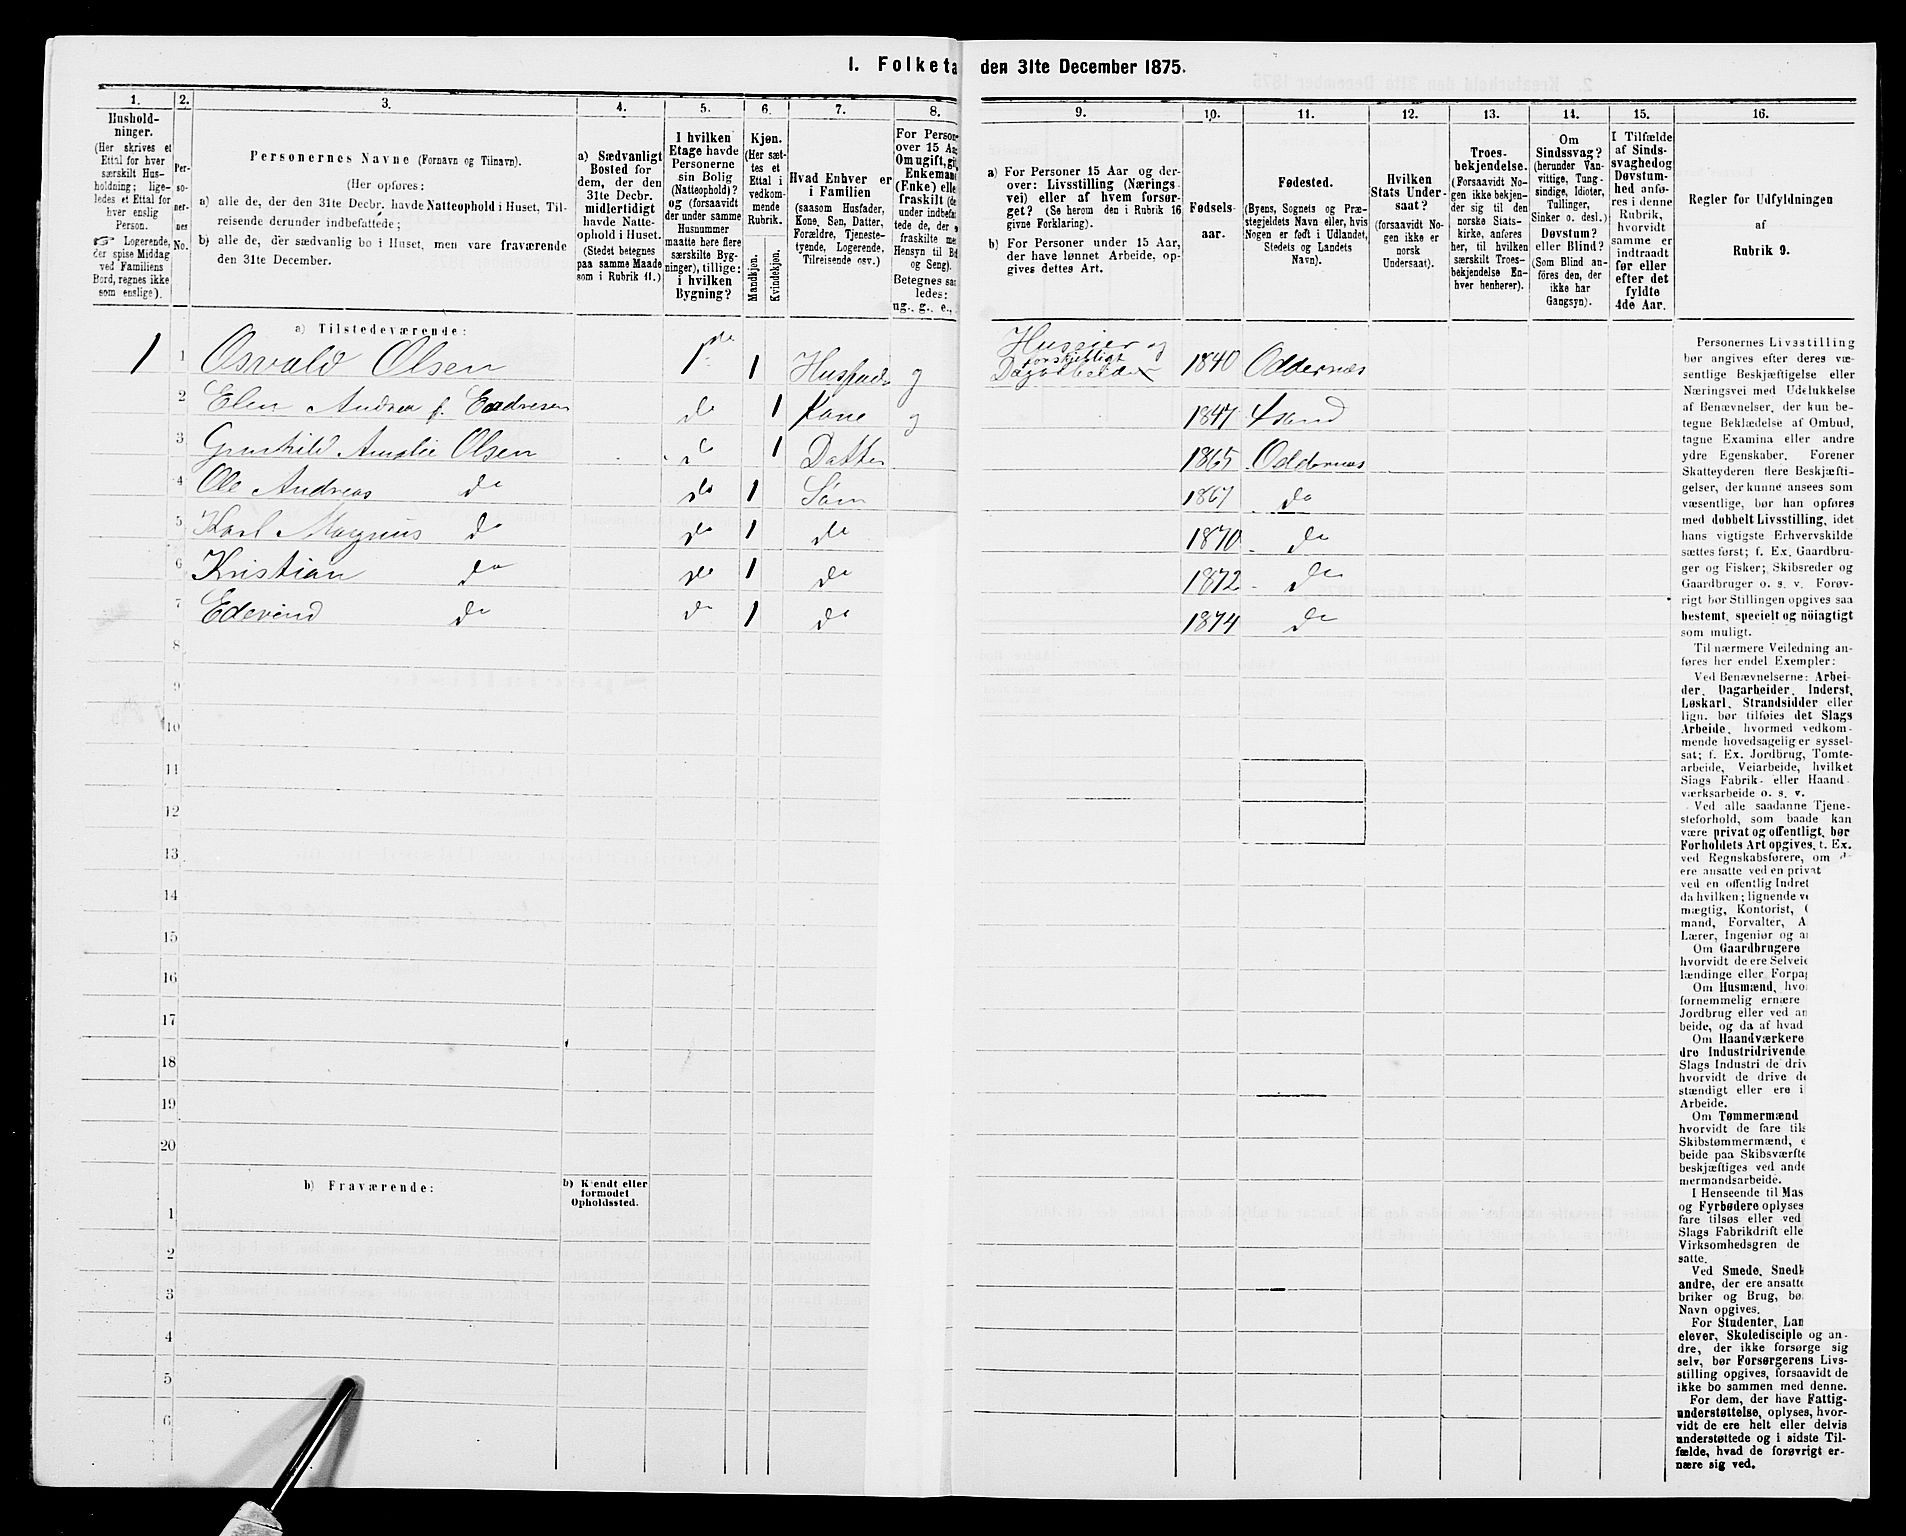 I. Folketæ den 31te December 1875.
1. 2. 3. 4. 5. 6. 7. 8. 9. 10. 11. 12. 13. 14. 15. 16.
Hushold-
ninger.
(Her skrives et
Ettal for hver
særskilt Hus-
holdning; lige-
ledes et Ettal for
hver enslig
Person.
☞ Logerende,
der spise Middag
ved Familiens
Bord, regnes ikke
som enslige).
Per-
so-
ner-
nes
No.
Personernes Navne (Fornavn og Tilnavn).
(Her opføres:
a) alle de, der den 31te Decbr. havde Natteophold i Huset, Til-
reisende derunder indbefattede;
b) alle de, der sædvanlig bo i Huset, men vare fraværende
den 31te December.
a) Sædvanligt
Bosted for
dem, der den
31te Decbr.
midlertidigt
havde Natte-
ophold i Huset.
(Stedet betegnes
paa samme Maade
som i Rubrik 11.)
I hvilken
Etage havde
Personerne
sin Bolig
(Natteophold)?
og (forsaavidt
der under samme
Husnummer
maatte høre flere
særskilte Byg-
ninger), tillige:
i hvilken
Bygning?
Kjøn.
(Her sæt-
tes et
Ettal i
vedkom-
mende
Rubrik.
Mandkjøn.
Kvindekjøn.
Hvad Enhver er
i Familien
(saasom Husfader,
Kone, Søn, Datter,
Forældre, Tjeneste-
tyende, Logerende,
Tilreisende osv.)
For Person
over 15 Aa
Om ugift, gi
Enkeman
(Enke) elle
fraskilt (de
under indbefa
tede de, der s
fraskilte me
Hensyn til Bo
og Seng).
Betegnes saa
ledes:
ug., g., e.,
a) For Personer 15 Aar og der-
over: Livsstilling (Nærings-
vei) eller af hvem forsør-
get? (Se herom den i Rubrik 16
givne Forklaring).
b) For Personer under 15 Aar,
der have lønnet Arbeide, op-
gives dettes Art.
Fødsels-
aar.
Fødested.
(Byens, Sognets og Præ-
stegjeldets Navn eller, hvis
Nogen er født i Udlandet,
Stedets og Landets
Navn).
Hvilken
Stats Under-
saat?
(forsaavidt No-
gen ikke er
norsk
Undersaat).
Troes-
bekjendelse.
(Forsaavidt No-
gen ikke bekjen-
der sig til den
norske Stats-
kirke, anføres
her, til hvilken
særskilt Troes-
bekjendelse En-
hver henhører).
Om
Sindssvag?
(herunder Van-
vittige, Tung-
sindige, Idioter,
Tullinger,
Sinker o. desl.)
Døvstum?
eller Blind?
(Som Blind an-
føres den, der
ikke har
Gangsyn).
I Tilfælde
af Sinds-
svaghedog
Døvstum-
hed anfø-
res i denne
Rubrik,
hvorvidt
samme er
indtraadt
før eller
efter det
fyldte
4de Aar.
Regler for Udfyldningen
af
Rubrik 9.
a) Tilstedeværende:
1 1 Osvald Olsen 1ste 1 Husfader g Huseier og forskjelligt Dagarbeider 1840 Oddernæs
2 Elen Andrea f. do 1 Kone g 1847
3 Gunhild Amalie Olsen do 1 Datter 1865 Oddernæs
4 Ole Andreas do do 1 Søn 1867 do
5 Karl Magnus do do 1 do 1870 do
6 Kristian do do 1 do 1872 do
7 do do 1 do 1874 do
8
9
10
11
12
13
14
15
16
17
18
19
20
b) Fraværende:
b) Kjendt eller
formodet
Opholdssted.
1
2
3
4
5
6
Personernes Livsstilling
bør angives efter deres væ-
sentlige Beskjæftigelse eller
Næringsvei med Udelukkelse
af Benævnelser, der kun be-
tegne Beklædelse af Ombud,
tagne Examina eller andre
ydre Egenskaber. Forener
Skatteyderen flere Beskjæfti-
gelser, der kunne ansees som
væsentlige, bør han opføres
med dobbelt Livsstilling, idet
hans vigtigste Erhvervskilde
sættes først; f. Ex. Gaardbru-
ger og Fisker; Skibsreder og
Gaardbruger o. s. v. Forøv-
rigt bør Stillingen opgives saa
bestemt, specielt og nöiagtigt
som muligt.
Til nærmere Veiledning an-
føres her endel Exempler:
Ved Benævnelserne: Arbei-
der, Dagarbeider, Inderst,
Løskarl, Strandsidder eller
lign. bør tilføies det Slags
Arbeide, hvormed vedkom-
mende hovedsagelig er syssel-
sat; f. Ex. Jordbrug, Tomte-
arbeide, Veiarbeide, hvilket
Slags Fabrik- eller Haand-
værksarbeide o. s. v.
Ved alle saadanne Tjene-
steforhold, som baade kan
være privat og offentligt, bør
Forholdets Art opgives, f. Ex.
ved Regnskabsførere, om d
ere ansatte ved en privat
ved en offentlig Indret
da hvilken; lignende ve
mægtig, Kontorist, 
mand, Forvalter, A
Lærer, Ingeniør og a
Om Gaardbrugere
hvorvidt de ere Selveie
lændinge eller Forpa
Om Husmænd, hvo
fornemmelig ernære
Jordbrug eller ved an
beide, og da af hvad
Om Haandværkere
dre Industridrivende
Slags Industri de driv
hvorvidt de drive de
stændigt eller ere i
Arbeide.
Om Tømmermænd
hvorvidt de fare tils
Skibstømmermænd, e
beide paa Skibsværfte
beskjæftiges ved ande
mermandsarbeide.
I Henseende til Mas
og Fyrbødere oplyses
fare tilsøs eller ved
Slags Fabrikdrift elle
Virksomhedsgren de
satte.
Ved Smede, Snedk
andre, der ere ansatte
briker og Brug, bø
Navn opgives.
For Studenter, Lan
elever, Skoledisciple og an-
dre, der ikke forsørge sig
selv, bør Forsørgerens Livs-
stilling opgives, forsaavidt de
ikke bo sammen med denne.
For dem, der have Fattig-
understøttelse, oplyses, hvor-
vidt de ere helt eller delvis
understøttede og i sidste Til-
fælde, hvad de forøvrigt er-
nære sig ved.